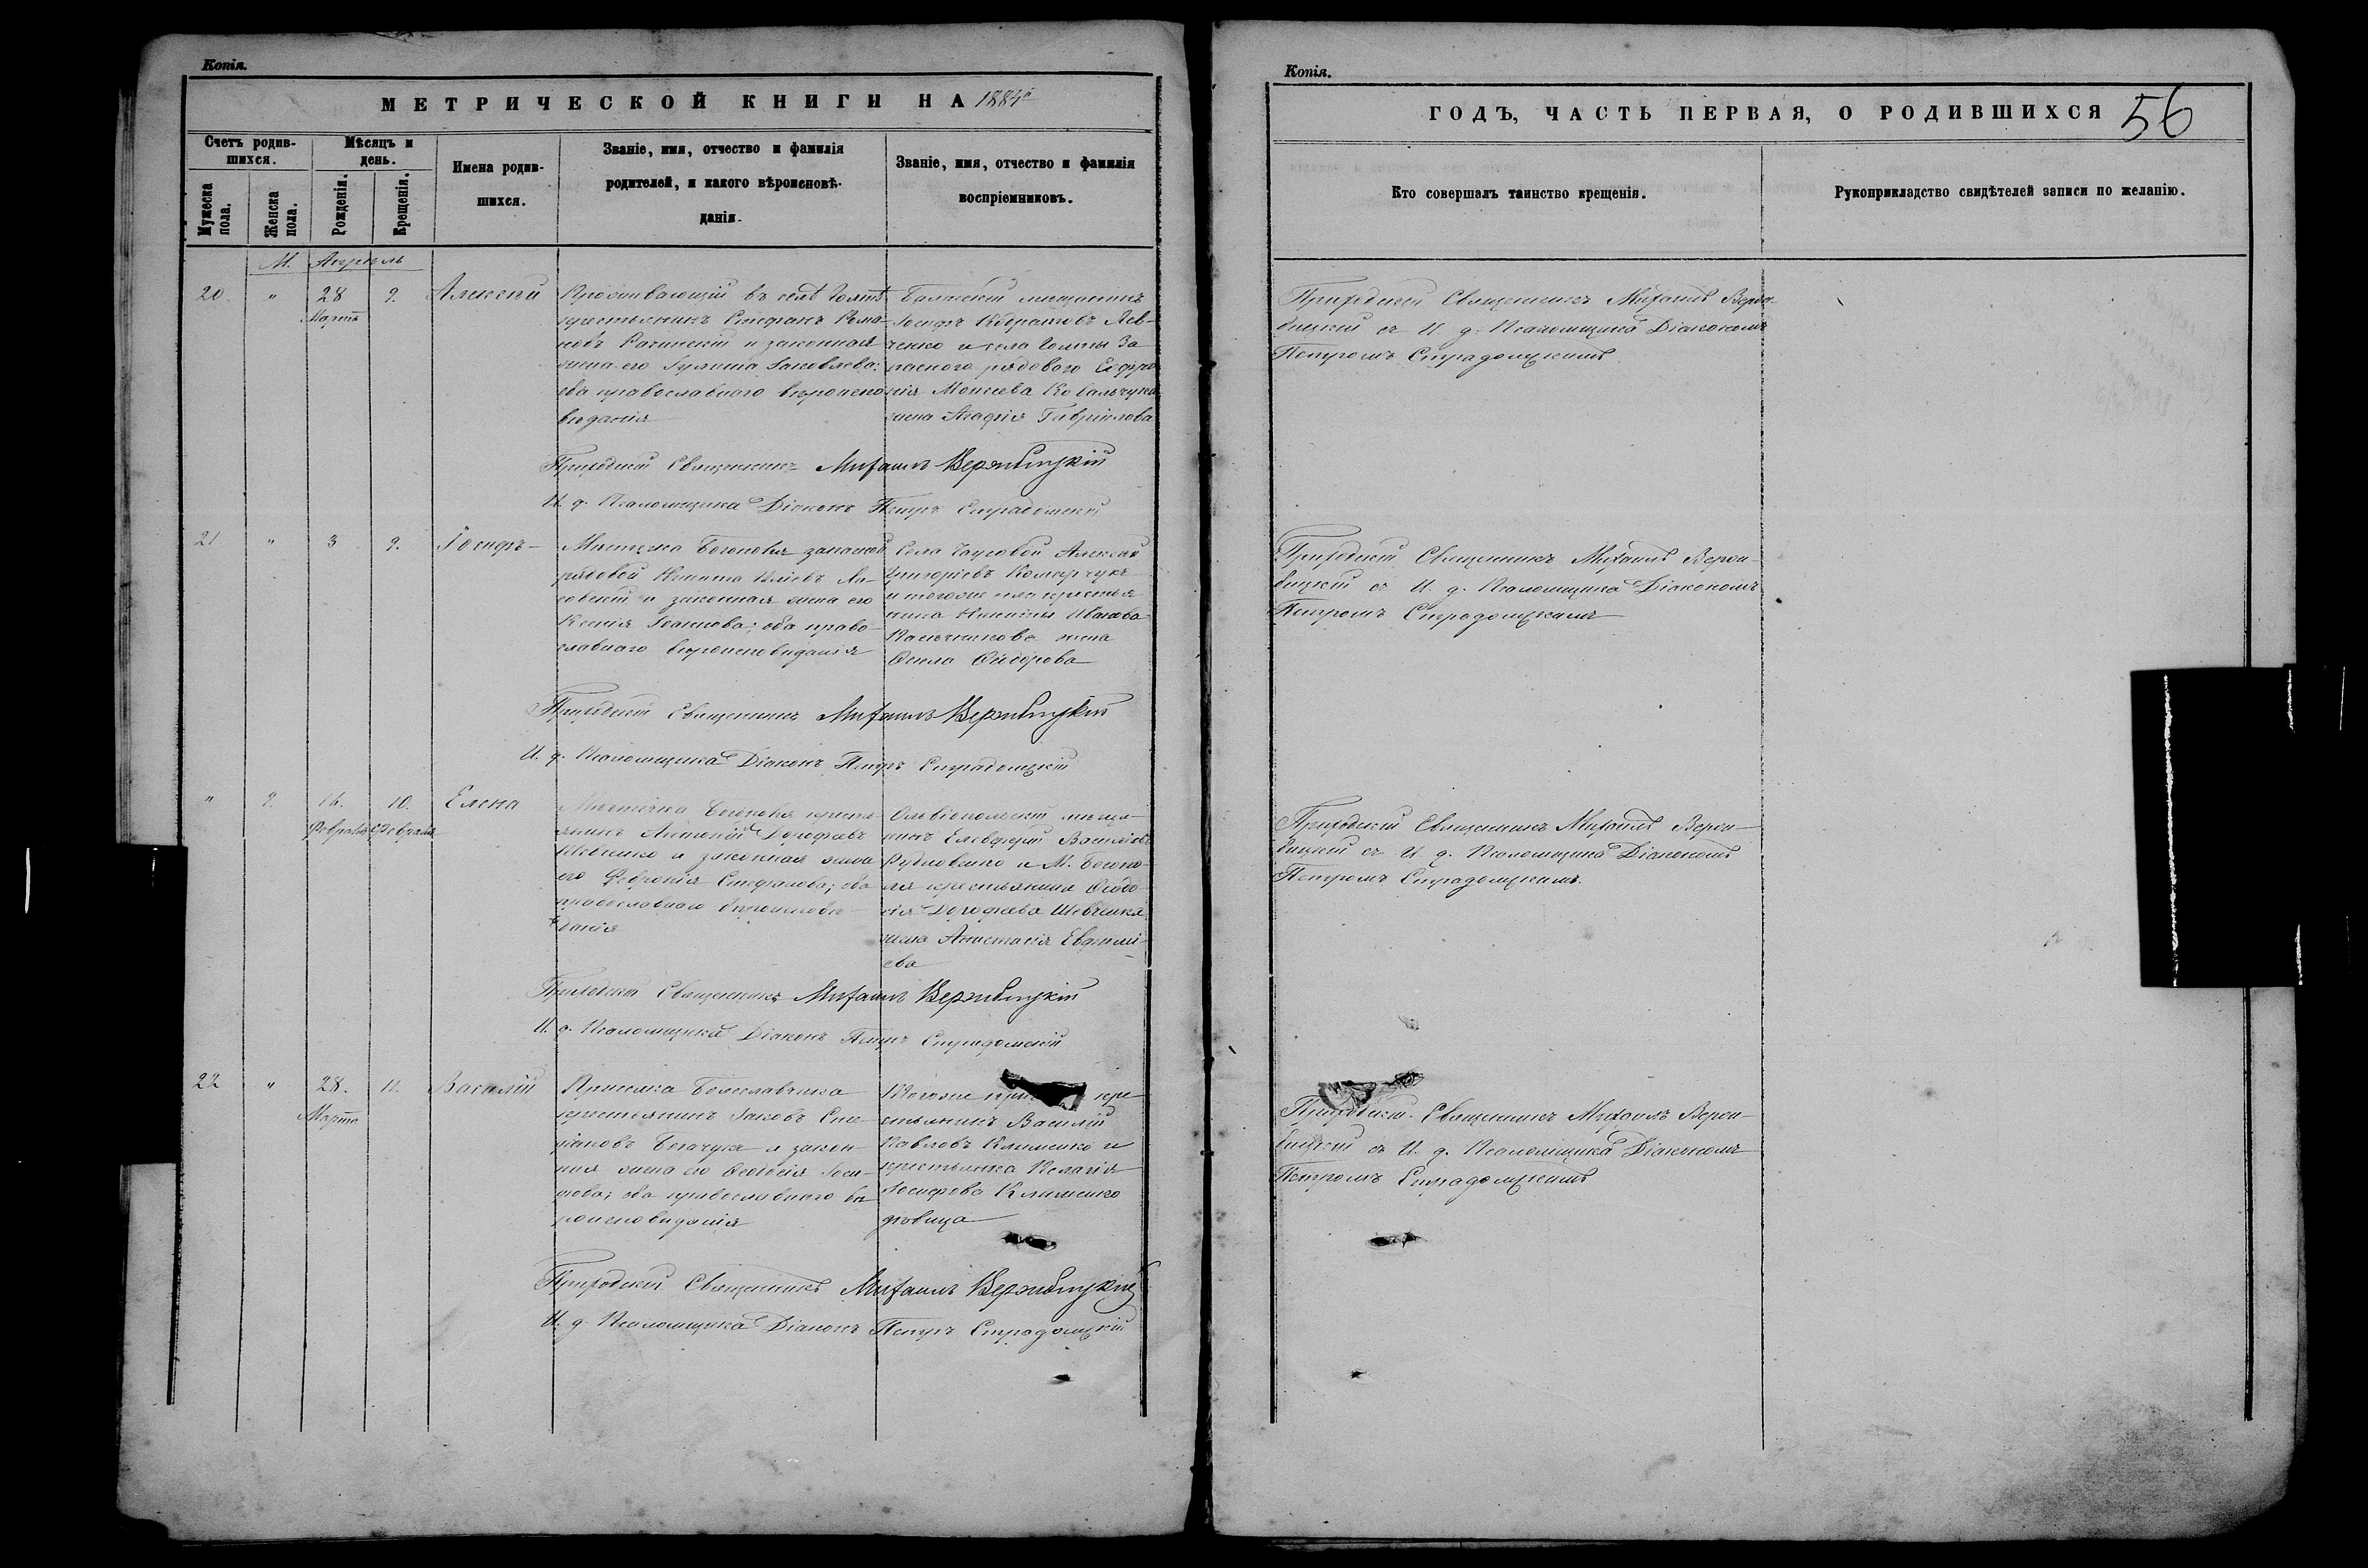 Копія.
МЕТРИЧЕСКОЙ КНИГИ НА 1884
Счетъ родив-
шихся.
Мужеска пола.
Женска пола.
Мѣсяцъ и
день.
Рожденія.
Крещенія.
Имена родив-
шихся.
Званіе, имя, отчество и фамилія
родителей, и какого вѣроисповѣ-
данія.
Званіе, имя, отчество и фамилія
воспріемниковъ.
М. Апрѣль
20. " 28 Марта 9. Алексѣй
Проживающій въ селѣ
крестьянинъ Стефанъ Рома-
новъ и законная
жена его Іаковлева;
оба православнаго вѣроиспо
вѣданія
мѣщанинъ
Іосифъ Лев-
ченко и села За
паснаго рядоваго Софро
нія Моисеева Ковальчука
жена Агафія Гавріилова
Приходскій Священникъ Михаилъ Вержбицкій
И. д. Псаломщика Діаконъ Петръ Страдомскій
21 " 3 9. Іосифъ
Мѣстечка Богополя запасной
рядовой Никита
и законная жена его
Ксенія Іоаннова; оба право-
славнаго вѣроисповѣданія
Села Алексѣй
Григоріевъ
и того же села крестья
нина Никиты Иванова
жена
Ѳекла
Приходскій Священникъ Михаилъ Вержбицкій
И. д. Псаломщика Діаконъ Петръ Страдомскій
" 9. 16. Февраля 10. Февраля Елена
Мѣстечка Богополя кресть
янинъ Дорофѣевъ
Шевченко и законная жена
его Февронія Стефанова; оба
православнаго вѣроисповѣ-
данія
Ольвіопольскій мѣща-
нинъ Елевферій Васильевъ
и М. Богопо-
ля крестьянина Ѳеодо-
сія Дорофѣева Шевченка
жена Анастасія Евфимі-
ева
Приходскій Священникъ Михаилъ Вержбицкій
И. д. Псаломщика Діаконъ Петръ Страдомскій
22 " 28. Марта 11. Василій
Приселка Богославчика
крестьянинъ Іаковъ Сте-
фановъ Богачукъ и закон-
ная жена его Ѳеодосія Іоси-
фова; оба православнаго вѣ
роисповѣданія
Того же кре
стьянинъ Василій
Павловъ Клименко и
крестьянка Пелагія
Іосифова Клименко
дѣвица
Приходскій Священникъ Михаилъ Вержбицкій
И. д. Псаломщика Діаконъ Петръ Страдомскій
Копія.
ГОДЪ, ЧАСТЬ ПЕРВАЯ, О РОДИВШИХСЯ 56
Кто совершалъ таинство крещенія.
Рукоприкладство свидѣтелей записи по желанію.
Приходскій Священникъ Михаилъ Верж-
бицкій съ И. д. Псаломщика Діакономъ
Петромъ Страдомскимъ
Приходскій Священникъ Михаилъ Верж-
бицкій съ И. д. Псаломщика Діакономъ
Петромъ Страдомскимъ
Приходскій Священникъ Михаилъ Верж-
бицкій съ И. д. Псаломщика Діакономъ
Петромъ Страдомскимъ.
Приходскій Священникъ Михаилъ Верж-
бицкій съ И. д. Псаломщика Діакономъ
Петромъ Страдомскимъ